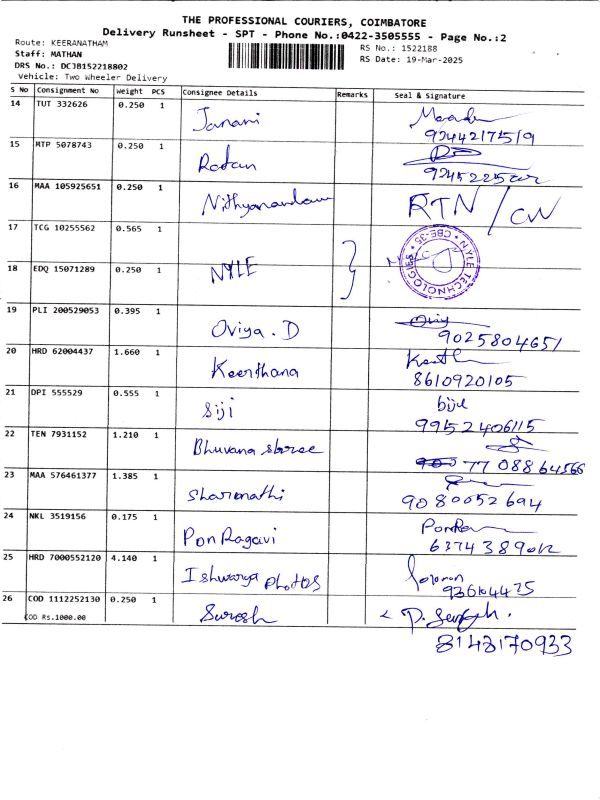 THE PROFESSIONAL COURIERS, COIMBATORE
Delivery Runsheet - SPT - Phone No.:0422-3505555 - Page No.:2
Route: KEERANATHAM
RS No.: 1522188
Staff: MATHAN
RS Date: 19-Mar-2025
DRS No.: DCJB152218802
Vehicle: Two Wheeler Delivery
S No Consignment No Weight PCS Consignee Details Remarks Seal & Signature
14 TUT 332626 0.250 1 Janani
9244217519
15 MTP 5078743 0.250 1 Ratan
16 MAA 105925651 0.250 1 Nithyanandan RTN / CW
17 TCG 10255562 0.565 1
NYLE TECHNOLOGIES CBE-35
18 EDQ 15071289 0.250 1 NYLE
19 PLI 200529053 0.395 1 Oviya . D
9025804651
20 HRD 62004437 1.660 1 Keerthana
8610920105
21 DPI 555529 0.555 1 Siji
9952406115
22 TEN 7931152 1.210 1 Bhuvana shree
77088 64566
23 MAA 576461377 1.385 1 Sharonathi
9080052694
24 NKL 3519156 0.175 1 Pon Ragavi
25 HRD 7000552120 4.140 1 Ishwarya photos
Solomon
26 COD 1112252130 0.250 1 Suresh
COD Rs.1000.00
8143170933